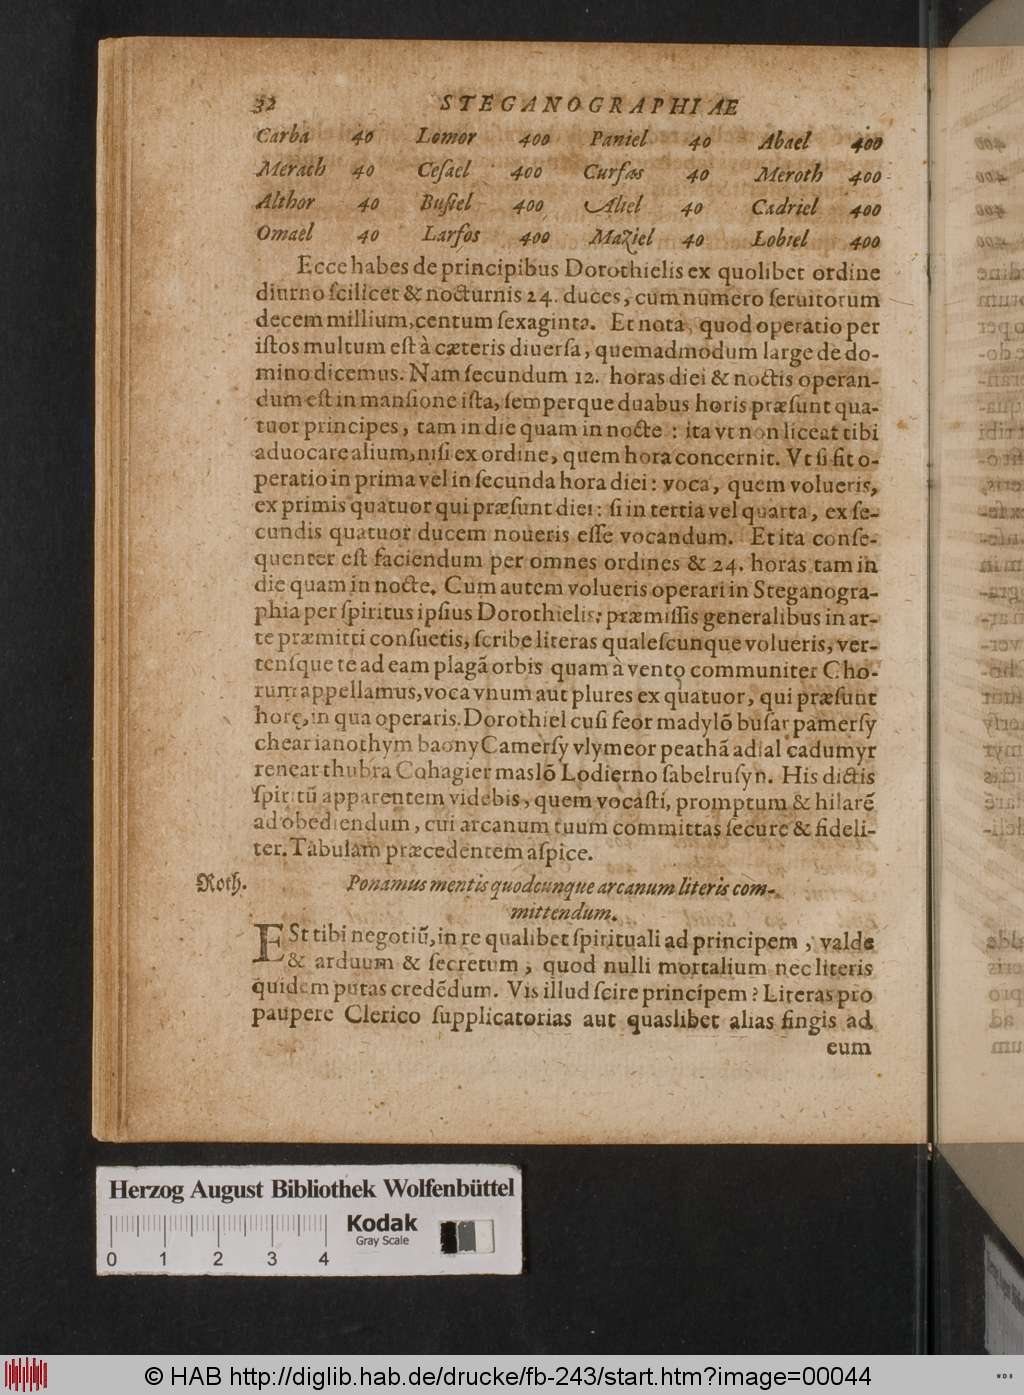 32 STEGANOGRAPHIAE
Carba 40 Lomor 400 Paniel 40 Abael 400
Merath 40 Ceſael 400 Curſas 40 Meroth 400
Althor 40 Buſiel 400 Aliel 40 Cadriel 400
Omael 40 Larfos 400 Maziel 40 Lobiel 400
Ecce habes de principibus Dorothielis ex quolibet ordine
diurno ſcilicet & nocturnis 24. duces, cum numero ſeruitorum
decem millium, centum ſexaginta. Et nota, quod operatio per
iſtos multum eſt à cæteris diuerſa, quemadmodum large de do-
mino dicemus. Nam ſecundum 12. horas diei & noctis operan-
dum eſt in manſione iſta, ſemperque duabus horis præſunt qua-
tuor principes, tam in die quam in nocte : ita vt non liceat tibi
aduocare alium, niſi ex ordine, quem hora concernit. Vt ſi ſit o-
peratio in prima vel in ſecunda hora diei : voca, quem volueris,
ex primis quatuor qui præſunt diei : ſi in tertia vel quarta, ex ſe-
cundis quatuor ducem noueris eſſe vocandum. Et ita conſe-
quenter eſt faciendum per omnes ordines & 24. horas tam in
die quam in nocte. Cum autem volueris operari in Steganogra-
phia per ſpiritus ipſius Dorothielis; præmiſſis generalibus in ar-
te præmitti conſuetis, ſcribe literas qualeſcunque volueris, ver-
tenſque te ad eam plagã orbis quam à vento communiter Cho-
rum appellamus, voca vnum aut plures ex quatuor, qui præſunt
horę, in qua operaris. Dorothiel cuſi feor madylõ buſar pamerſy
chear ianothym baony Camerſy vlymeor peathã adial cadumyr
renear thubra Cohagier maslõ Lodierno ſabelruſyn. His dictis
ſpiritũ apparentem videbis, quem vocaſti, promptum & hilarẽ
ad obediendum, cui arcanum tuum committas ſecure & fideli-
ter. Tabulam præcedentem aſpice.
Roth. Ponamus mentis quodcunque arcanum literis com-
mittendum.
ESt tibi negotiũ, in re qualibet ſpirituali ad principem, valde
& arduum & ſecretum, quod nulli mortalium nec literis
quidem putas credẽdum. Vis illud ſcire principem ? Literas pro
paupere Clerico ſupplicatorias aut quaslibet alias fingis ad
eum
Herzog August Bibliothek Wolfenbüttel
Kodak
Gray Scale
0 1 2 3 4
© HAB http://diglib.hab.de/drucke/fb-243/start.htm?image=00044